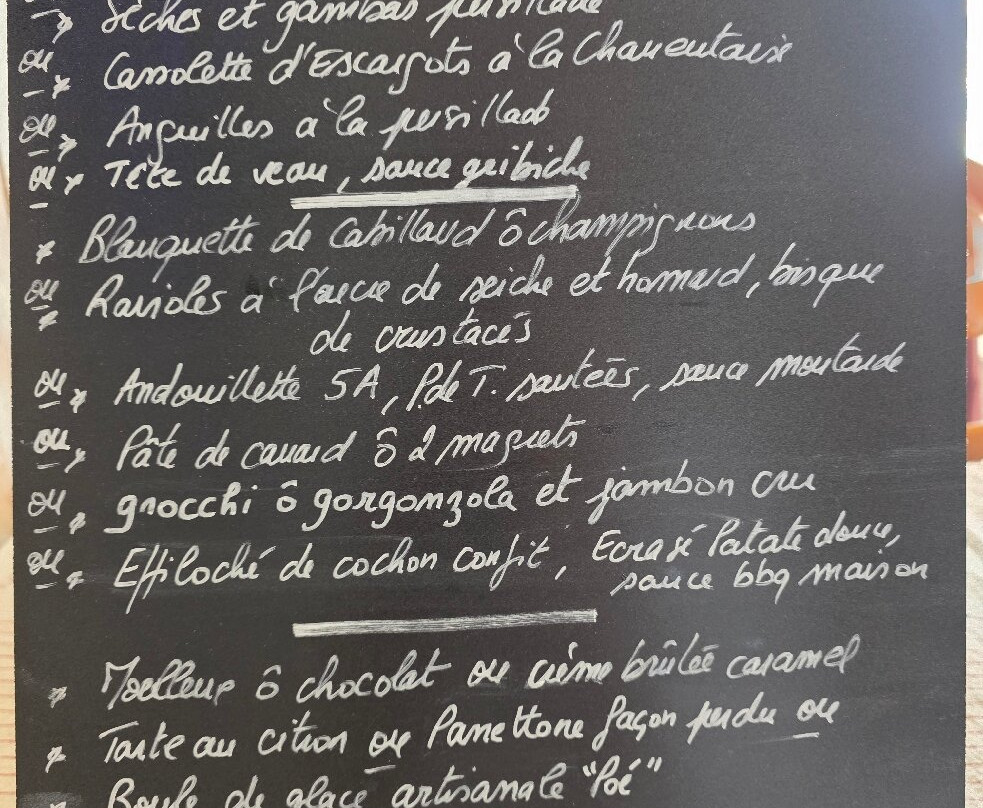 Sèches et gambas persillade
ou * Cassolette d'Escargots à la Charentaise
ou * Anguilles à la persillade
ou * Tête de veau, sauce gribiche
* Blanquette de Cabillaud ô champignons
ou * Ravioles à l'encre de seiche et homard, bisque
de crustacés
ou * Andouillette 5A, P.de T. sautées, sauce moutarde
ou * Pâté de canard ô 2 magrets
ou * gnocchi ô gorgonzola et jambon cru
ou * Effiloché de cochon confit, Ecrasé Patate douce,
sauce bbq maison
* Moelleux ô chocolat ou crème brûlée caramel
* Tarte au citron ou Panettone façon perdu ou
* Boule de glace artisanale "Poé"